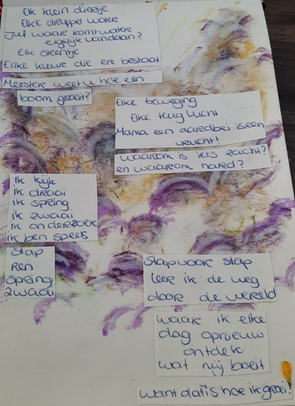 Elk klein diertje
Elke druppel water
Juf waar komt water
eigelijk vandaan?
Elk steentje
Elke kleur die er bestaat
Meester weet u hoe een
boom groeit?
Elke beweging
Elke teug lucht
Mama een aardbei is een
vrucht!
Waarom is iets zacht?
en waarom hard?
Ik kijk
Ik draai
Ik spring
Ik zwaai
Ik onderzoek
Ik ben speels
Stap
Ren
Spring
Zwaai
Stap voor stap
leer ik de weg
door de wereld
waar ik elke
dag opnieuw
ontdek
wat mij boeit
Want dat is hoe ik groei!